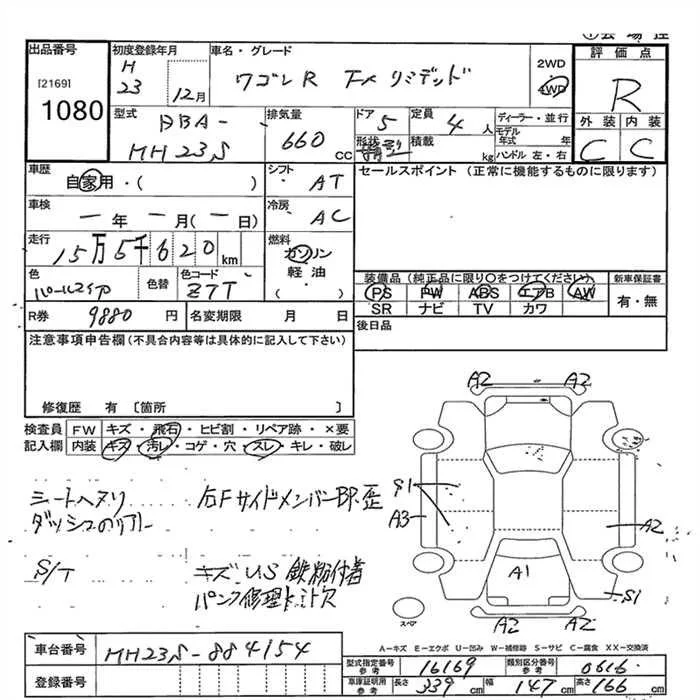 出品番号
[2169]
1080
初度登録年月
H
23
12月
車名・グレード
ワゴンR FXリミテッド
2WD
4WD
評価点
R
外装 内装
C C
型式
DBA-
MH23S
排気量
660
CC
ドア
5
定員
4人
ディーラー・並行
形状
積載
kg
モデル
年式
年
ハンドル 左・右
車歴
自家用・( )
シフト
AT
セールスポイント (正常に機能するものに限ります)
車検
一年 一月(一日)
冷房
AC
走行
15万5千620
km
燃料
ガソリン
軽油
( )
色
パールホワイト
色替
色コード
Z7T
装備品(純正品に限り○をつけてください)
新車保証書
PS PW ABS エアB AW
SR ナビ TV カワ
有・無
R券
9880 円
名変期限
月 日
後日品
注意事項申告欄(不具合内容等は具体的に記入して下さい)
修復歴 有 [箇所 ]
検査員
記入欄
FW キズ・飛石・ヒビ割・リペア跡・×要
内装 キズ・汚レ・コゲ・穴・スレ・キレ・破レ
シートヘタリ
右Fサイドメンバー BP.歪
S/T
キズ U.S 鉄粉付着
パンク修理キット欠
A2 A2
S1
A3
A2
A1
S1
A2 A2
スペア
A-キズ E-エクボ U-凹み W-補修跡 S-サビ C-腐食 XX-交換済
車台番号
MH23S-884154
登録番号
型式指定番号
参考
16169
類別区分番号
参考
0616
車庫証明用
参考
長さ
339
cm
幅
147
cm
高さ
166
cm